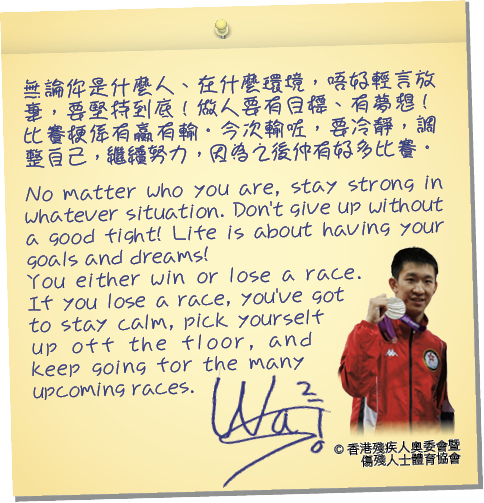 無論你是什麼人、在什麼環境，唔好輕言放
棄，要堅持到底！做人要有目標、有夢想！
比賽梗係有贏有輸。今次輸咗，要冷靜，調
整自己，繼續努力，因為之後仲有好多比賽。
No matter who you are, stay strong in
whatever situation. Don't give up without
a good fight! Life is about having your
goals and dreams!
You either win or lose a race.
If you lose a race, you've got
to stay calm, pick yourself
up off the floor, and
keep going for the many
upcoming races.
© 香港殘疾人奧委會暨
傷殘人士體育協會